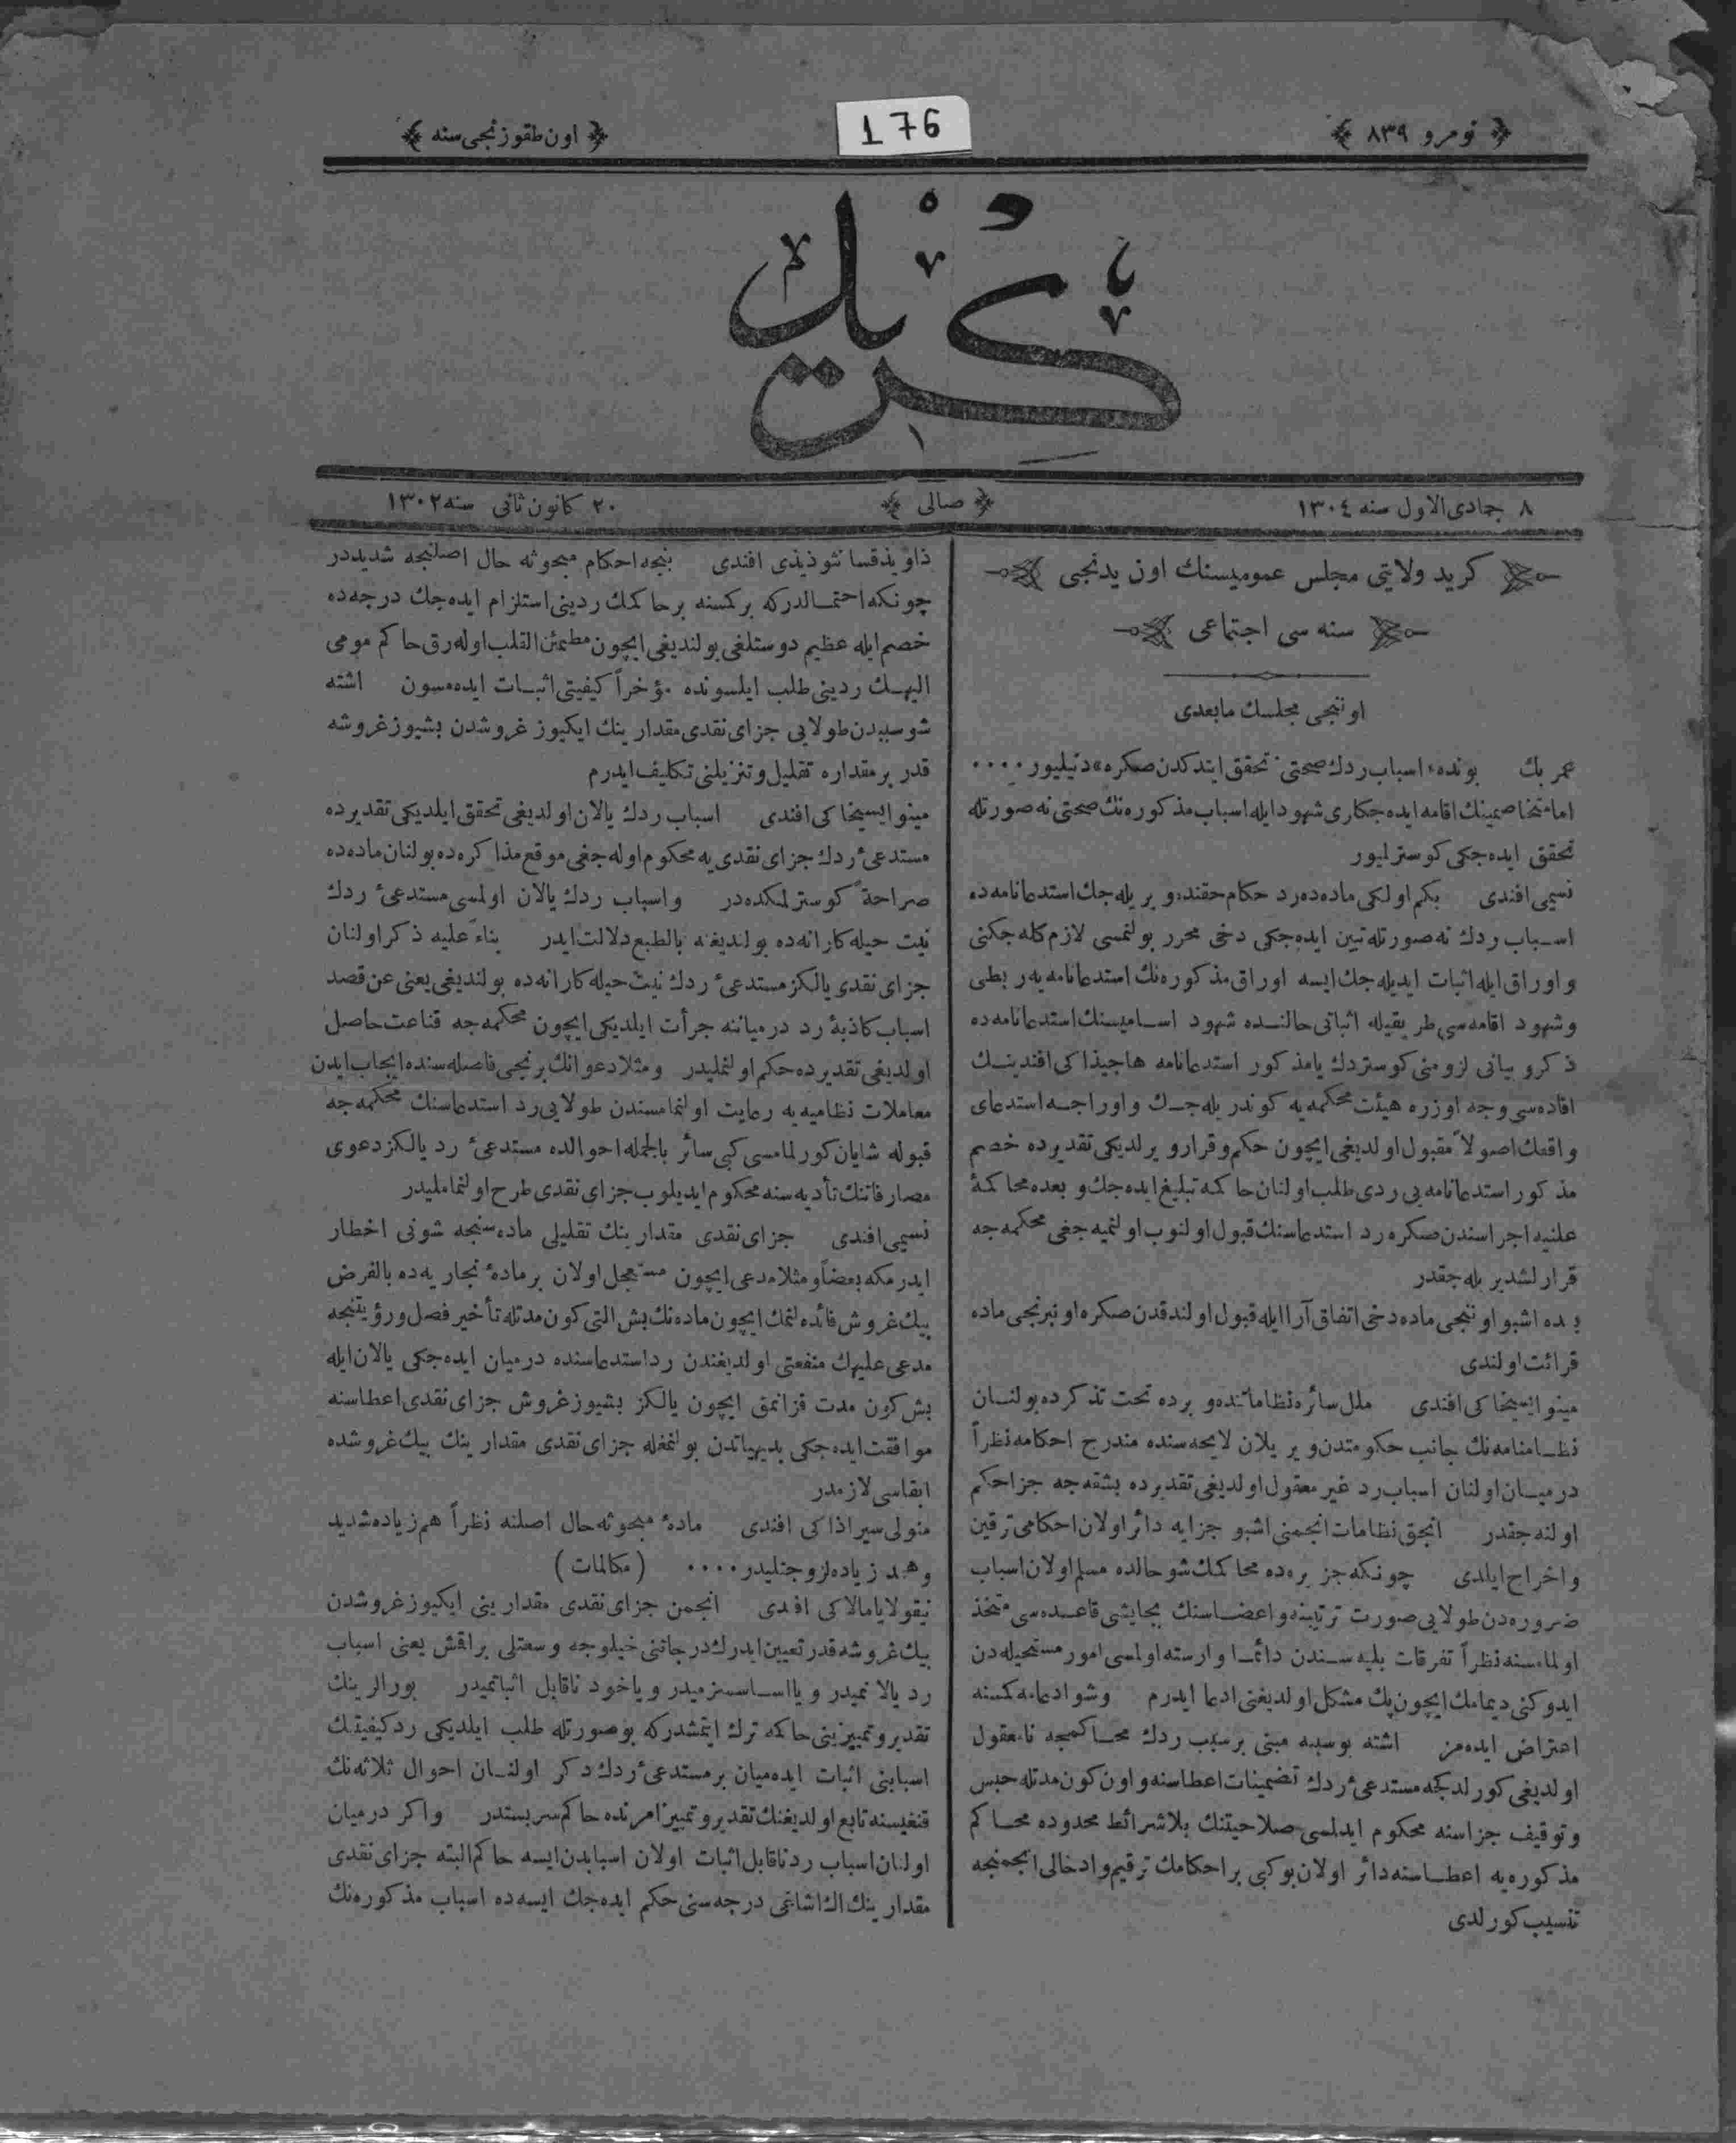 نومرو ٨٣٩
176
اون طقوزنجی سنه
كريد
٨ جمادى الاول سنه ١٣٠٤
صالى
٢٠ كانون ثانى سنه ١٣٠٢
كريد ولايتى مجلس عموميسنك اون يدنجى
سنه سى اجتماعى
اوننجى مجلسك مابعدى
عمر بك بونده «اسباب ردك صحتى تحقق ايتدكدن صكره» دنيليور ....
اما متخاصمينك اقامه ايده جكارى شهود ايله اسباب مذكوره نك صحتى نه صورتله
تحقق ايده جكى كوستر لميور
نسيمى افندى بكم اولكى ماده ده رد حكام حقنده ويريله جك استدعانامه ده
اسباب ردك نه صورتله تبين ايده جكى دخى محرر بولنمسى لازم كله جكنى
و اوراق ايله اثبات ايديله جك ايسه اوراق مذكوره نك استدعانامه يه ربطى
وشهود اقامه سى طريقيله اثباتى حالنده شهود اساميسنك استدعانامه ده
ذكر و بيانى لزومنى كوستردك يا مذكور استدعانامه هاجيذاكى افندينك
افاده سى وجه اوزره هيئت محكمه يه كوندريله جك و اوراجه استدعاى
واقعك اصولاً مقبول اولديغى ايچون حكم و قرار ويرلديكى تقديرده خصم
مذكور استدعانامه يى ردى طلب اولنان حاكمه تبليغ ايده جك و بعده محاكمۀ
علنيه اجراسندن صكره رد استدعاسنك قبول اولنوب اولنميه جغى محكمه جه
قرارلشديريله جقدر
بعده اشبو اوننجى ماده دخى اتفاق آرا ايله قبول اولندقدن صكره اون برنجى ماده
قرائت اولندى
مينو ايسيخاكى افندى ملل سائره نظاماتنده و برده تحت تذكرده بولنان
نظامنامه نك جانب حكومتدن ويريلان لايحه سنده مندرج احكامه نظراً
درميان اولنان اسباب رد غير معقول اولديغى تقديرده بشقه جه جزا حكم
اولنه جقدر انجق نظامات انجمنى اشبو جزايه دائر اولان احكامى ترقين
و اخراج ايلدى چونكه جزيره ده محاكمك شو حالده مسلم اولان اسباب
ضروره دن طولايى صورت ترتيبنه و اعضاسنك بجايشى قاعده سى متخذ
اولمامسنه نظراً تفرقات بليه سندن دائما وارسته اولمسى امور مستحيله دن
ايدوكنى ديمامك ايچون پك مشكل اولديغنى ادعا ايدرم وشو ادعامه كمسنه
اعتراض ايده مز اشته بوسببه مبنى برسبب ردك محاكمجه نامعقول
اولديغى كورلدكجه مستدعىٔ ردك تضمينات اعطاسنه و اون كون مدتله حبس
و توقيف جزاسنه محكوم ايدلمسى صلاحيتنك بلا شرائط محدوده محاكم
مذكوره يه اعطاسنه دائر اولان بوكبى بر احكامك ترقيم و ادخالى انجمنجه
تنسيب كورلدى
ذاويذ قسانثوذيذى افندى بنجه احكام مبحوثه حال اصلنجه شديددر
چونكه احتمالدركه بركمسنه برحاكمك ردينى استلزام ايده جك درجه ده
خصم ايله عظيم دوستلغى بولنديغى ايچون مطمئن القلب اوله رق حاكم مومى
اليهك ردينى طلب ايلسونده مؤخراً كيفيتى اثبات ايده مسون اشته
شو سببدن طولايى جزاى نقدى مقدارينك ايكيوز غروشدن بشيوز غروشه
قدر بر مقداره تقليل و تنزيلنى تكليف ايدرم
مينو ايسيخاكى افندى اسباب ردك يالان اولديغى تحقق ايلديكى تقديرده
مستدعىٔ ردك جزاى نقدى يه محكوم اوله جغى موقع مذاكره ده بولنان ماده ده
صراحةً كوسترلمكده در و اسباب ردك يالان اولمسى مستدعىٔ ردك
نيت حيله كارانه ده بولنديغنه بالطبع دلالت ايدر بناءً عليه ذكر اولنان
جزاى نقدى يالكز مستدعىٔ ردك نيت حيله كارانه ده بولنديغى يعنى عن قصد
اسباب كاذبۀ رد درمياننه جرأت ايلديكى ايچون محكمه جه قناعت حاصل
اولديغى تقديرده حكم اولنمليدر و مثلا دعوانك برنجى فاصله سنده ايجاب ايدن
معاملات نظاميه يه رعايت اولنمامسندن طولايى رد استدعاسنك محكمه جه
قبوله شايان كورلمامسى كبى سائر بالجمله احوالده مستدعىٔ رد يالكز دعوى
مصارفاتنك تأديه سنه محكوم ايديلوب جزاى نقدى طرح اولنمامليدر
نسيمى افندى جزاى نقدى مقدارينك تقليلى ماده سنجه شونى اخطار
ايدرمكه بعضاً و مثلا مدعى ايچون مستعجل اولان بر مادۀ تجاريه ده بالفرض
بيك غروش فائده لنمك ايچون ماده نك بش التى كون مدتله تأخير فصل و رؤيتنجه
مدعى عليهك منفعتى اولديغندن رد استدعاسنده درميان ايده جكى يالان ايله
بش كون مدت قزانمق ايچون يالكز بشيوز غروش جزاى نقدى اعطاسنه
موافقت ايده جكى بديهياتدن بولنمغله جزاى نقدى مقدارينك بيك غروشده
ابقاسى لازمدر
منولى سيراذاكى افندى مادۀ مبحوثه حال اصلنه نظراً هم زياده شديد
وهم ده زياده لزوجتليدر .... (مكالمات)
نيقولا يامالاكى افندى انجمن جزاى نقدى مقدارينى ايكيوز غروشدن
بيك غروشه قدر تعيين ايدرك درجاتنى خيليوجه وسعتلى براقمش يعنى اسباب
رد يالانميدر و يا اساسسزميدر و ياخود ناقابل اثباتميدر بورالرينك
تقدير و تمييزينى حاكمه ترك ايتمشدركه بوصورتله طلب ايلديكى رد كيفيتنك
اسبابنى اثبات ايده ميان بر مستدعىٔ ردك ذكر اولنان احوال ثلاثه نك
قنغيسنه تابع اولديغنك تقدير و تمييز امرنده حاكم سربستدر و اكر درميان
اولنان اسباب رد ناقابل اثبات اولان اسبابدن ايسه حاكم البته جزاى نقدى
مقدارينك اك اشاغى درجه سنى حكم ايده جك ايسه ده اسباب مذكوره نك